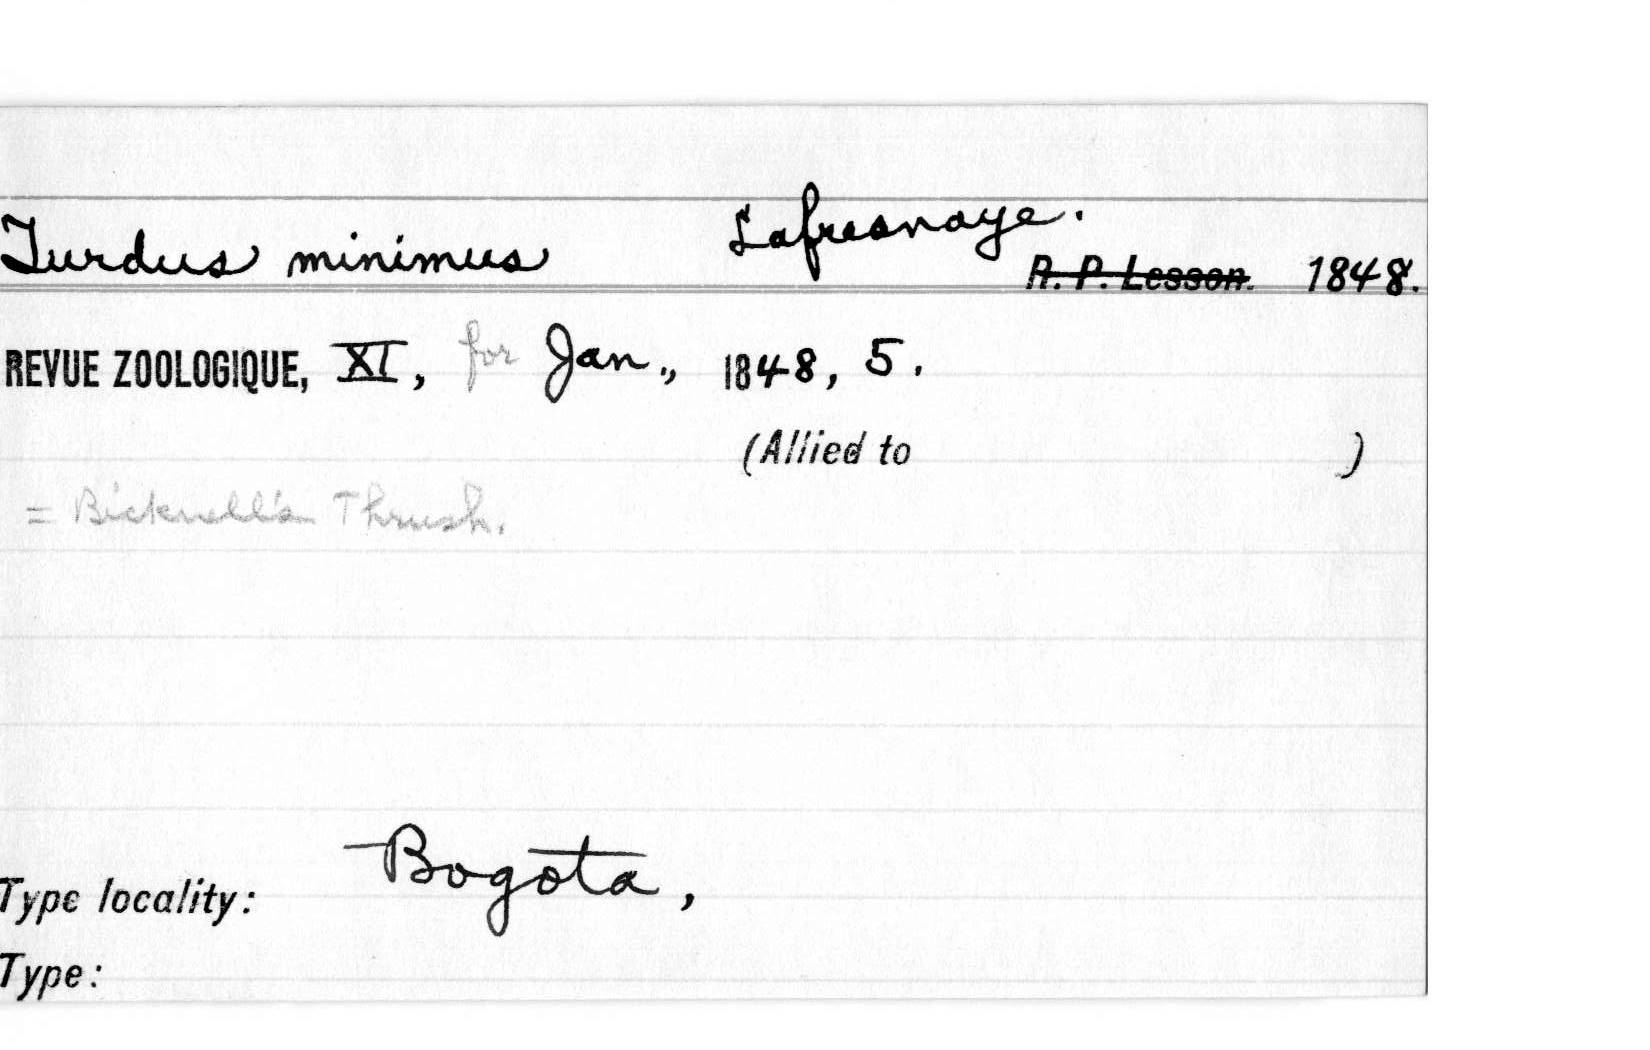 Turdus minimus Lafresnaye. R. P. Lesson. 1848.
REVUE ZOOLOGIQUE, XI, for Jan., 1848, 5.
(Allied to )
= Bicknell's Thrush.
Type locality: Bogota,
Type: